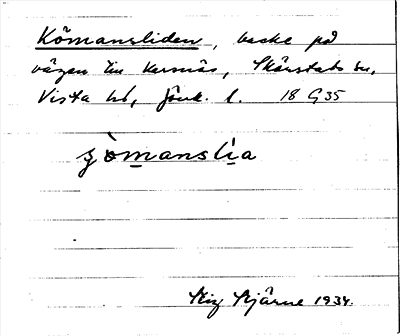 Kömansliden, backe på
vägen till Kersnäs, Skärstads sn,
Vista hd, Jönk. l. 18 G 35
ʒòmanslìa
Stig Stjärne 1934.